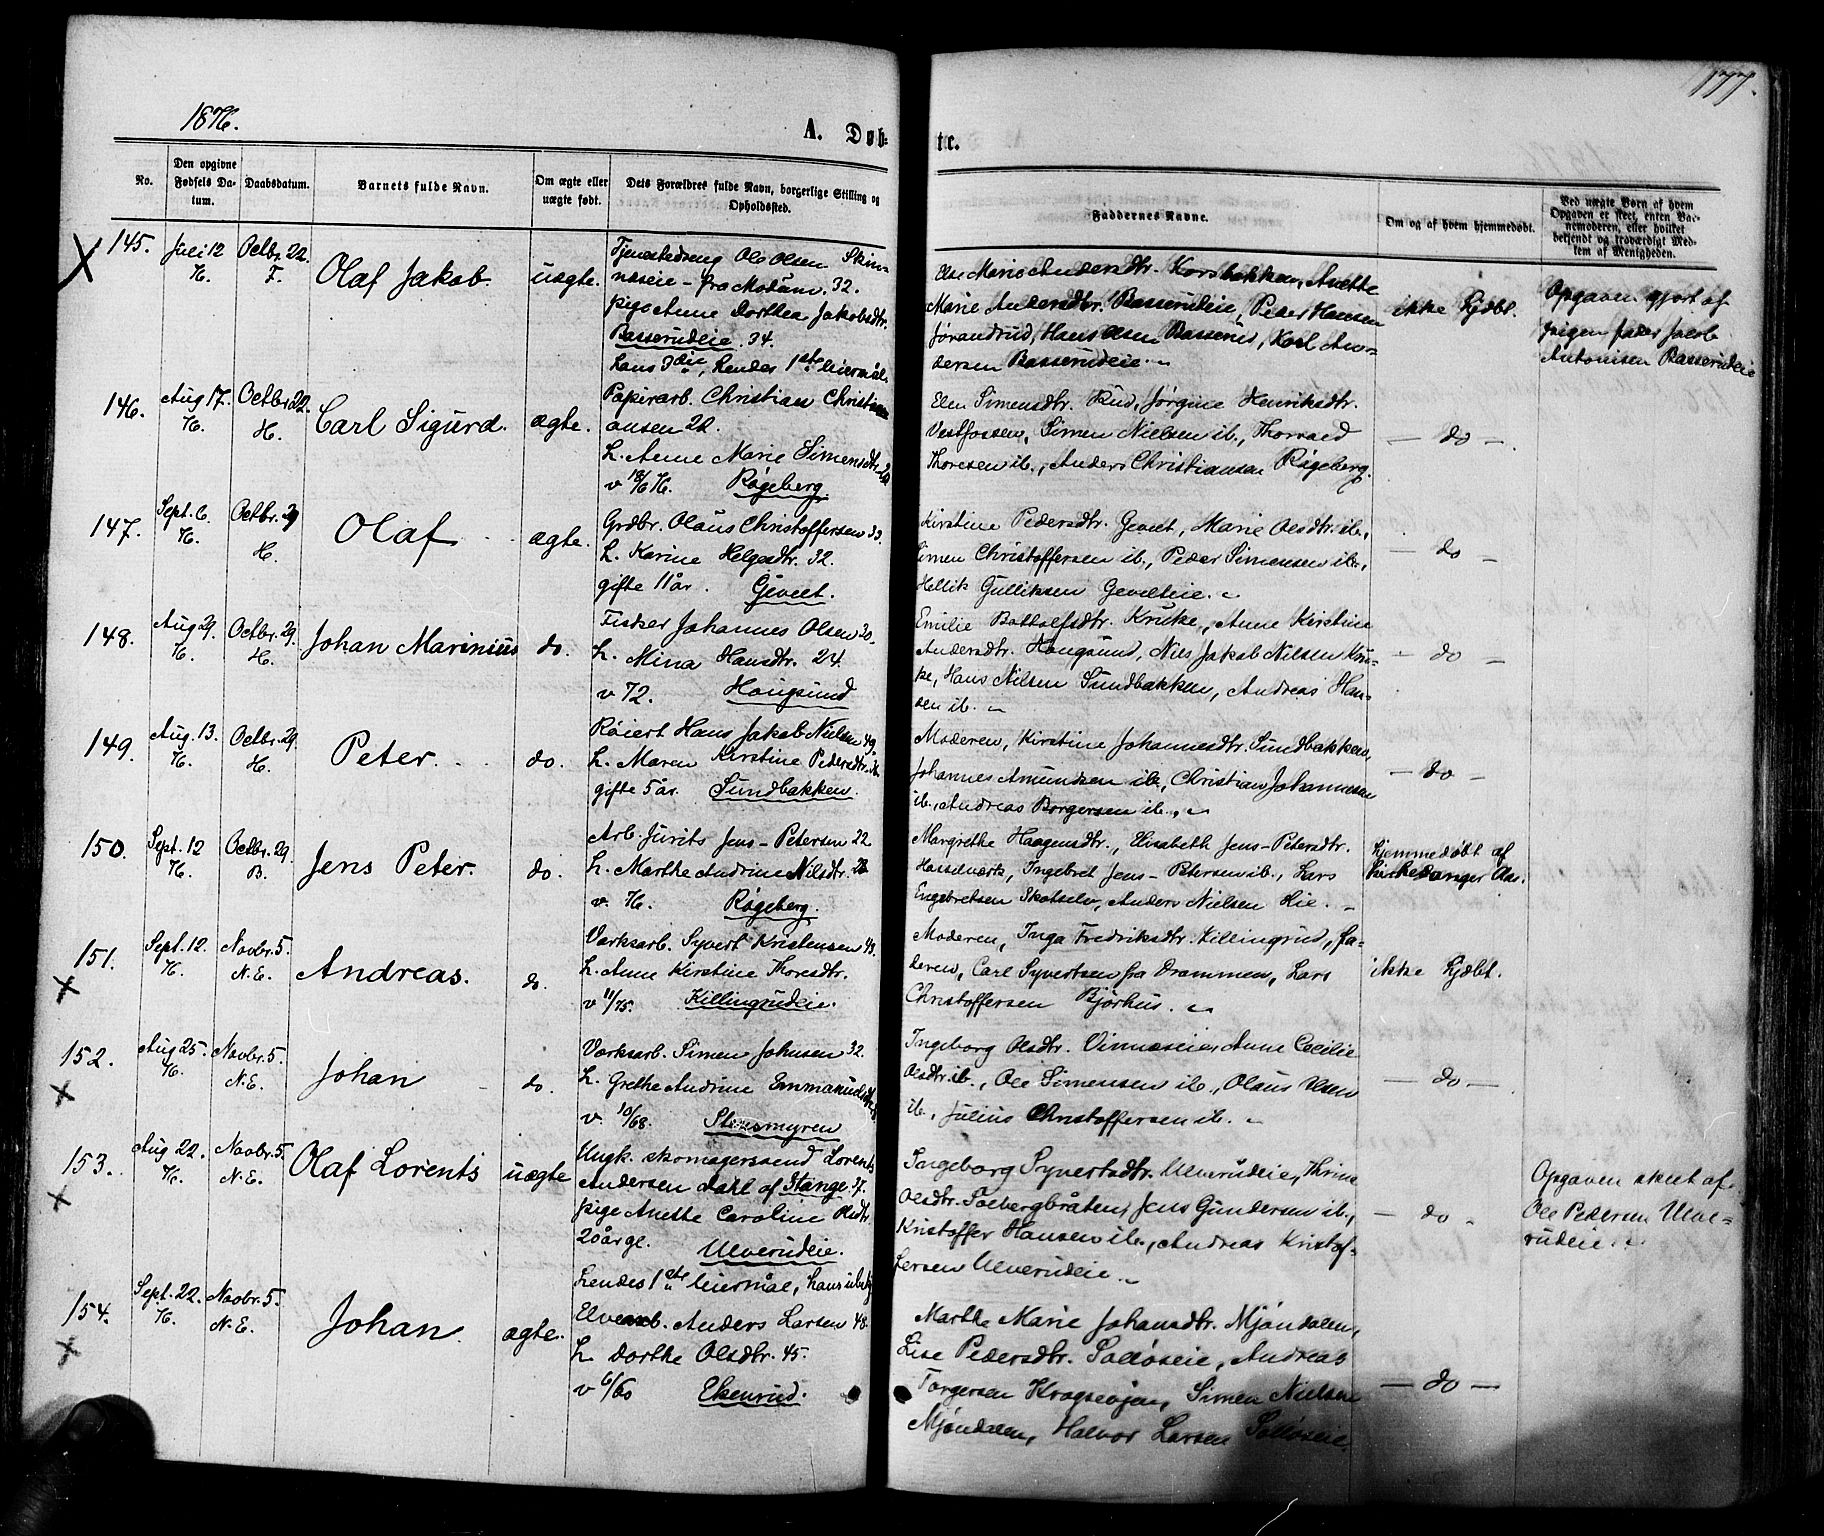 1876.
A. Døb-
te.
177.
No.
Den opgivne
Fødsels Da-
tum.
Daabsdatum.
Barnets fulde Navn.
Om ægte eller
uægte født.
Dets Forældres fulde Navn, borgerlige Stilling og
Opholdssted.
Faddernes Navne.
Om og af hvem hjemmedøbt.
Ved uægte Børn af hvem
Opgaven er skeet, enten Bar-
nemoderen, eller hvilket
bekjendt og troværdigt Med-
lem af Menigheden.
145.
Juli 12
H.
Octbr. 22.
F.
Olaf Jakob.
uægte.
Tjenestedreng Ole Olsen Skin-
næseie - fra Modum. 32.
pige Anne Dorthea Jakobsdtr.
Basserudeie. 34.
Hans 3die, Hendes 1ste leiermål.
Else Marie Andersdtr. Korsbakken, Anette
Marie Andersdtr. Basserudeie, Peder Hansen
Jørandrud, Hans Olsen Basserud, Karl An-
dersen Basserudeie.
ikke hjdbt.
Opgaven gjort af
pigen fader Jacob
Antonisen Basserudeie
146.
Aug 17.
H.
Octbr 22.
H.
Carl Sigurd.
ægte.
Papirarb. Christian Christi-
ansen 22.
H. Anne Marie Simensdtr.
v 18/6 76. Røgeberg.
Elen Simensdtr. Rud, Jørgine Henriksdtr.
Vestfossen, Simen Nielsen ib., Thorvald
Thoresen ib., Anders Christiansen Røgeberg.
— do —
147.
Sept. 6.
H.
Octbr. 29
H.
Olaf
ægte.
Grdbr. Olaus Christoffersen 33.
H. Karine Helgesdtr. 32.
gifte 11 år. Gevelt.
Kirstine Pedersdtr. Gevelt, Marie Olsdtr. ib.,
Simen Christoffersen ib., Peder Simensen ib.,
Hellik Gulliksen Gevelteie.
— do —
148.
Aug 29.
H.
Octbr. 29.
H.
Johan Marinius
do.
Fisker Johannes Olsen 30.
H. Mina Hansdtr. 24.
v 72. Hougsund
Emilie Bottolfsdtr. Kruke, Anne Kirstine
Andersdtr. Hougsund, Nils Jakob Nilsen Kru-
ke, Hans Nilsen Sundbakken, Andreas Han-
sen ib.
— do —
149.
Aug. 13.
H.
Octbr. 29.
H.
Peter.
do.
Røiert Hans Jakob Nielsen 49.
H. Maren Kirstine Pedersdtr.
gifte 5 år. Sundbakken.
Moderen, Kirstine Johannesdtr. Sundbakken,
Johannes Amundsen ib., Christian Johannesen
ib., Andreas Borgersen ib.
— do —
150.
Sept. 12
H.
Octbr. 29.
B.
Jens Peter.
do.
Arb. Jurits Jens-Petersen 22
H. Marthe Andrine Nilsdtr. 28
v. 76. Røgeberg.
Margrethe Haagensdtr., Elisabeth Jens-Petersdtr.
Hasselværk, Ingebret Jens-Petersen ib., Lars
Engebretsen Skotselv, Anders Nielsen Lie.
Hjemmedøbt af
Kirkesanger Aas.
151.
Sept. 12.
H.
Novbr. 5.
N.E.
Andreas.
do.
Værksarb. Syvert Kristensen 43.
H. Anne Kirstine Thoresdtr.
v 11/75. Killingrudeie.
Moderen, Inga Fredriksdtr. Killingrud, fa-
deren, Carl Syvertsen fra Drammen, Lars
Christoffersen Bjørhus.
ikke hjdbt.
152.
Aug 25.
H.
Novbr. 5.
N.E.
Johan
do.
Værksarb. Simen Johnsen 32.
H. Grethe Andrine Emmanuelsdtr.
v. 10/68. Stensmyren
Ingeborg Olsdtr. Vinnæseie, Anne Cecilie
Olsdtr. ib., Ole Simensen ib., Olaus Olsen
ib., Julius Christoffersen ib.
— do —
153.
Aug 22.
H.
Novbr. 5.
N.E.
Olaf Lorents
uægte
Ungk. skomagersvend Lorents
Andersen Dahl af Stange 37.
pige Anette Caroline Olsdtr.
20 år gl. Ulverudeie.
Hendes 1ste leiermål, hans ubekj
Ingeborg Syvertsdtr. Ulverudeie, Thrine
Olsdtr. Solbergbråten, Jens Gundersen ib.,
Kristoffer Hansen ib., Andreas Kristof-
fersen Ulverudeie.
— do —
Opgaven skeet af
Ole Pedersen Ulve-
rudeie.
154.
Sept. 22.
H.
Novbr. 5.
N.E.
Johan.
ægte.
Elvearb. Anders Larsen 48.
H. Dorthe Olsdtr. 45.
v 6/60 Ekenrud.
Marthe Marie Johansdtr. Mjøndalen,
Lise Pedersdtr. Solløseie, Andreas
Torgersen Krogseøjen, Simen Nielsen
Mjøndalen, Halvor Larsen Solløseie.
— do —